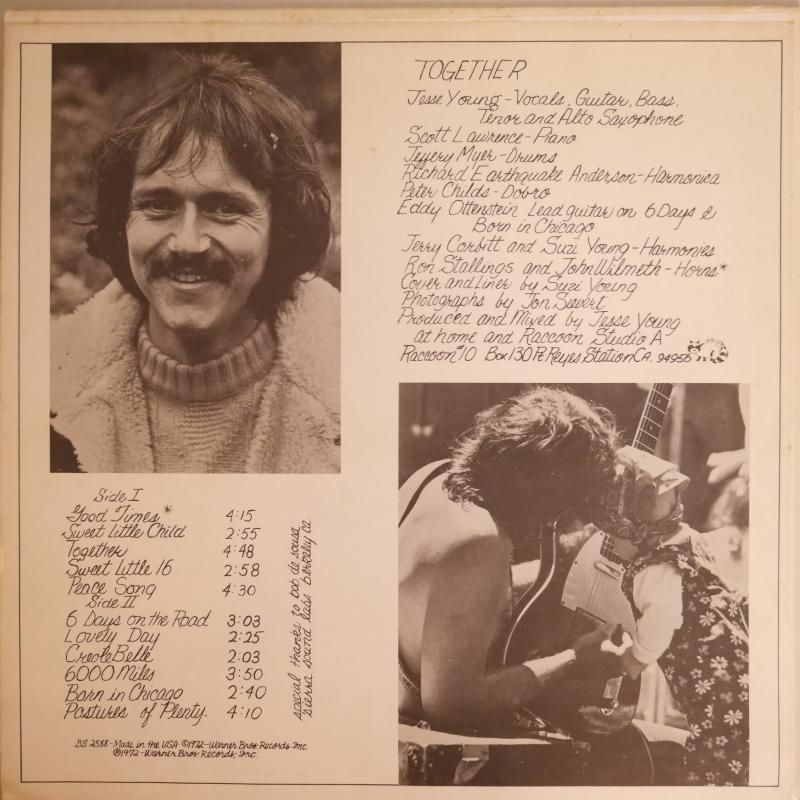 TOGETHER
Jesse Young - Vocals, Guitar, Bass,
Tenor and Alto Saxophone
Scott Lawrence - Piano
Jeffery Myer - Drums
Richard Earthquake Anderson - Harmonica
Peter Childs - Dobro
Eddy Ottenstein Lead guitar on 6 Days &
Born in Chicago
Jerry Corbitt and Suzi Young - Harmonies
Ron Stallings and John Wilmeth - Horns*
Cover and Liner by Suzi Young
Photographs by Jon Sievert
Produced and Mixed by Jesse Young
at home and Raccoon Studio A
Raccoon #10 Box 130 Pt. Reyes Station CA. 94956
Side I
Good Times* 4:15
Sweet Little Child 2:55
Together 4:48
Sweet Little 16 2:58
Peace Song 4:30
Side II
6 Days on the Road 3:03
Lovely Day 2:25
Creole Belle 2:03
6000 Miles 3:50
Born in Chicago 2:40
Pastures of Plenty. 4:10
special thanks to bob de sousa
sierra sound labs berkeley ca
BS 2588 - Made in the USA ©1972 - Warner Bros. Records Inc.
℗1972 - Warner Bros. Records, Inc.